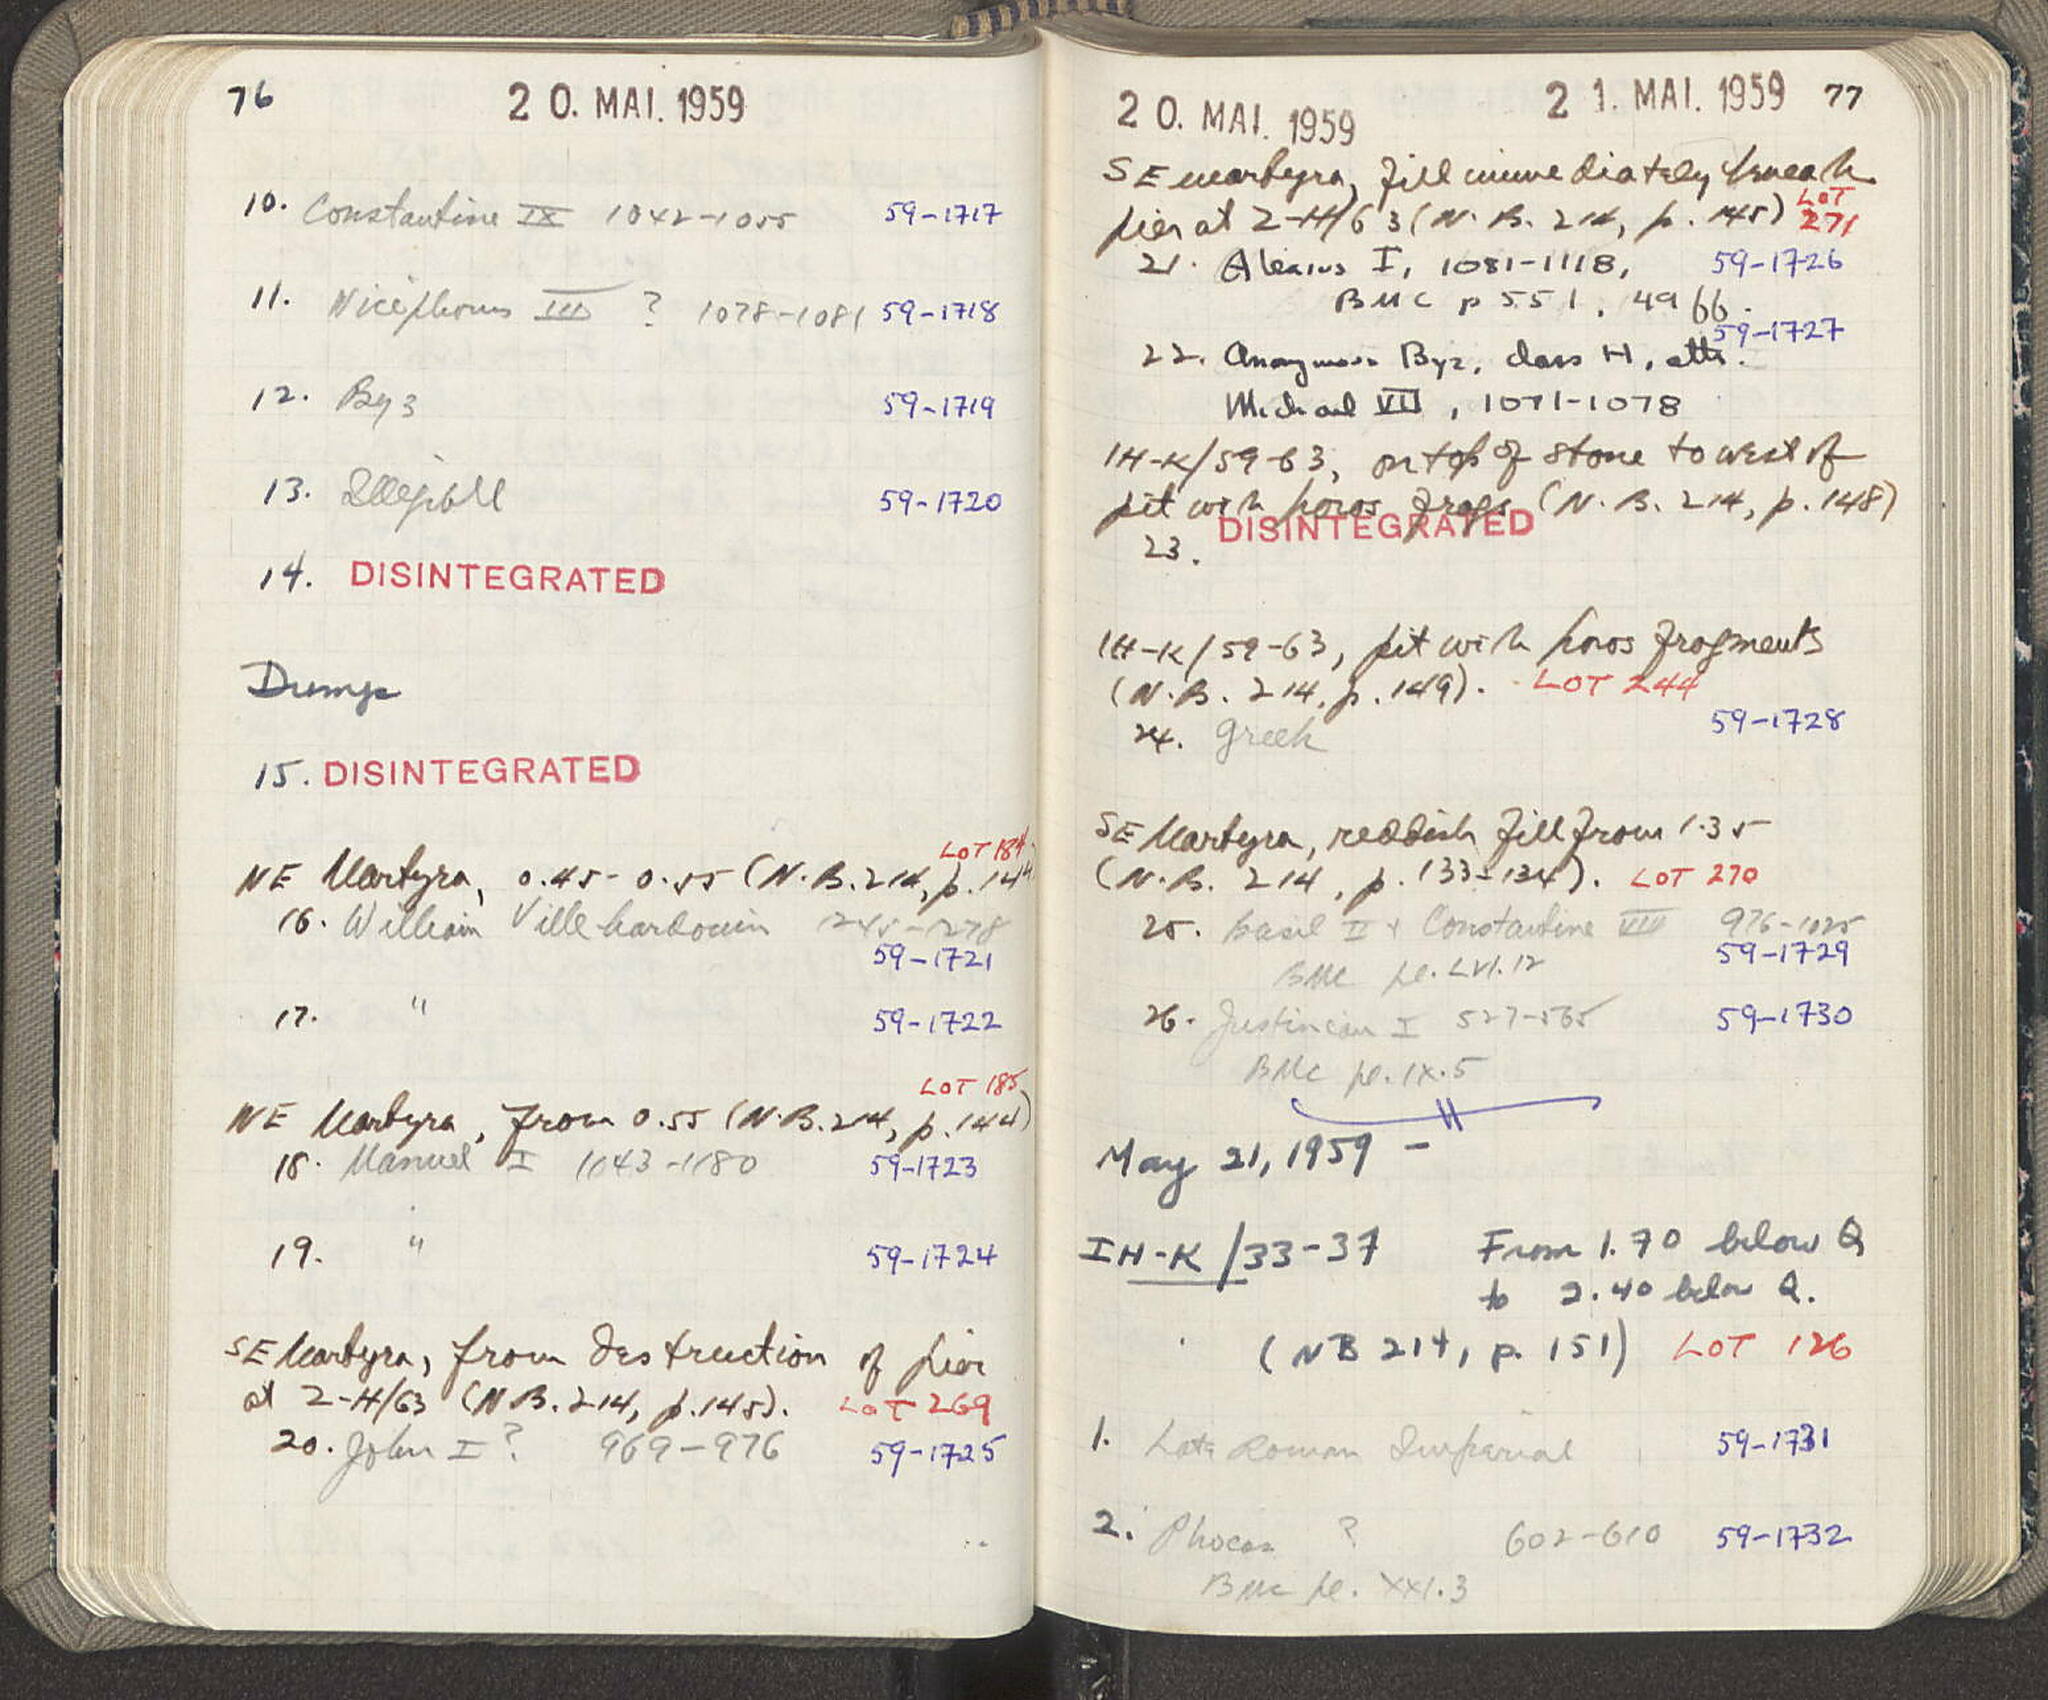 76 20. MAI. 1959
10. Constantine IX 1042-1055 59-1717
11. Nicephorus III ? 1078-1081 59-1718
12. Byz 59-1719
13. Illegible 59-1720
14. DISINTEGRATED
Dumps
15. DISINTEGRATED
LOT 184
NE Martyra, 0.45-0.55 (N.B. 214, p. 144)
16. William Villehardouin 1245-1278
59-1721
17. " 59-1722
LOT 185
NE Martyra, from 0.55 (N.B. 214, p. 144)
18. Manuel I 1143-1180 59-1723
19. " 59-1724
SE Martyra, from destruction of pier
at 2-H/63 (N.B. 214, p. 145). LOT 269
20. John I ? 969-976 59-1725
20. MAI. 1959 21. MAI. 1959 77
SE martyra, fill immediately beneath
pier at 2-H/63 (N.B. 214, p. 145) LOT 271
21. Alexius I, 1081-1118, 59-1726
BMC p 551, 49 ff.
59-1727
22. Anonymous Byz, class H, attr.
Michael VII, 1071-1078
1H-K/59-63, on top of stone to west of
pit with poros frags (N.B. 214, p. 148)
DISINTEGRATED
23.
1H-K/59-63, pit with poros fragments
(N.B. 214, p. 149). LOT 244
59-1728
24. Greek
SE Martyra, reddish fill from 1.35
(N.B. 214, p. 133-134). LOT 270
25. Basil II + Constantine VIII 976-1025
59-1729
BMC pl. LVI.12
26. Justinian I 527-565 59-1730
BMC pl. IX.5
May 21, 1959 -
IH-K/33-37 From 1.70 below Q
to 2.40 below Q.
(NB 214, p. 151) LOT 126
1. Late Roman Imperial 59-1731
2. Phocas ? 602-610 59-1732
BMC pl. XXI.3